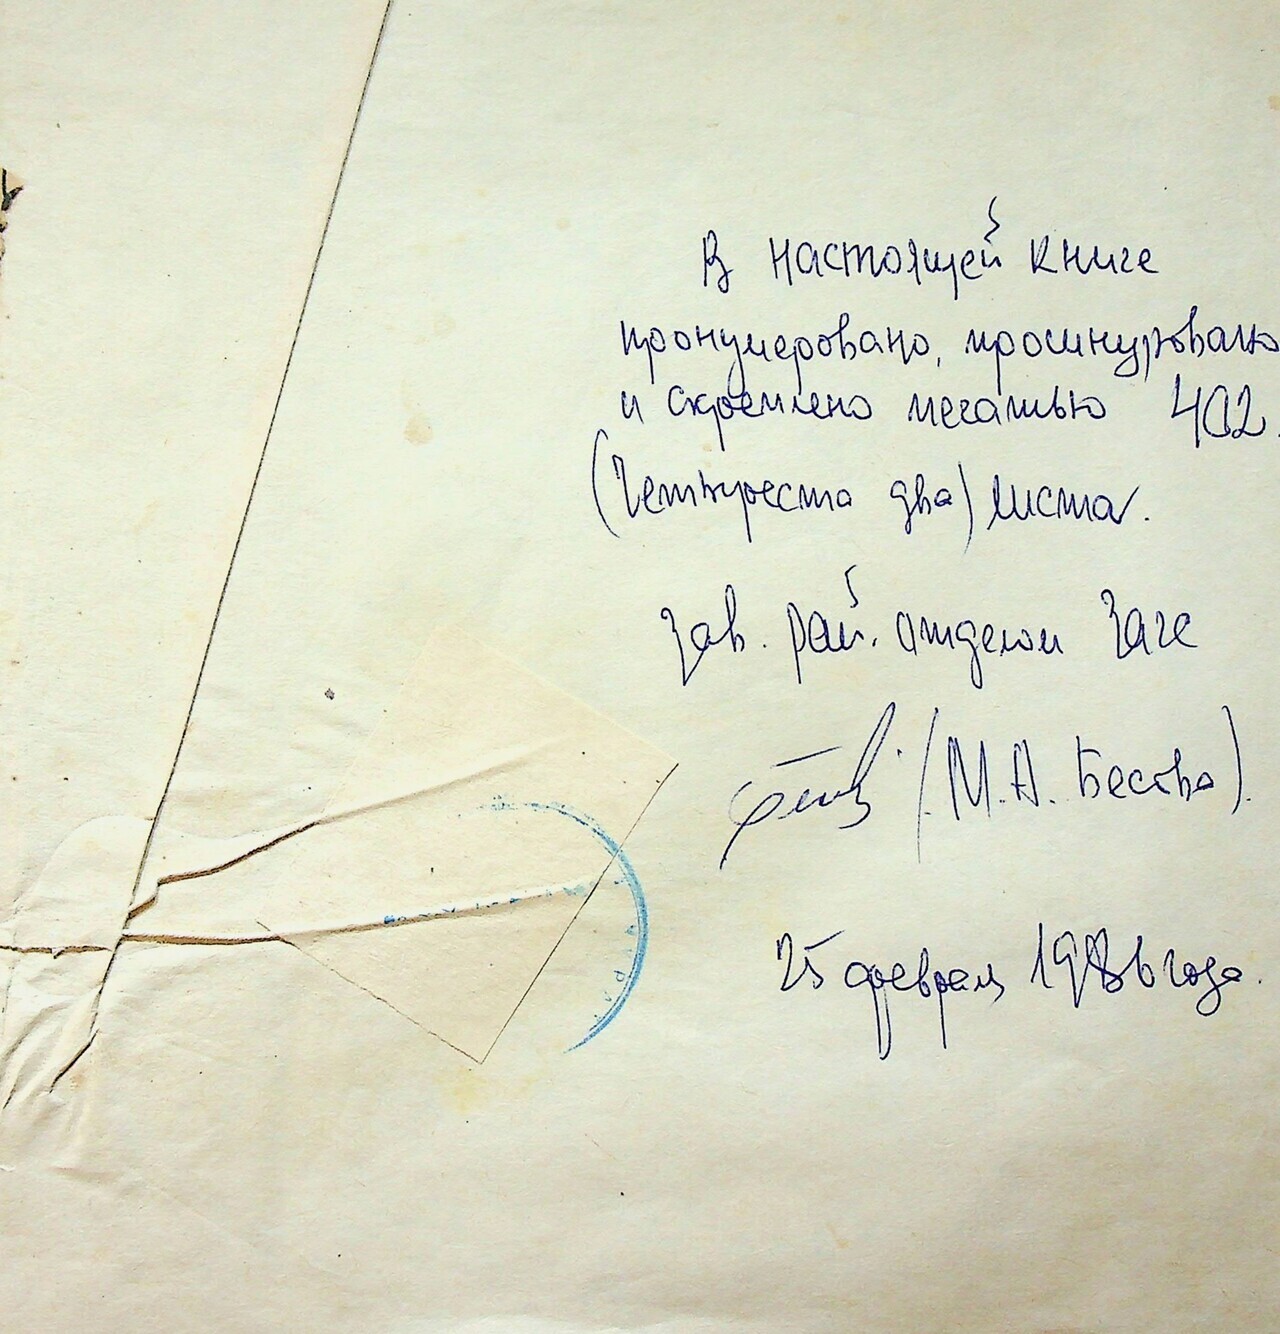 В настоящей книге
пронумеровано, прошнуровано
и скреплено печатью 402.
(Четыреста два) листа.
Зав. рай. отделом Загс
(М. А. Бесова).
25 февраля 1986 года.